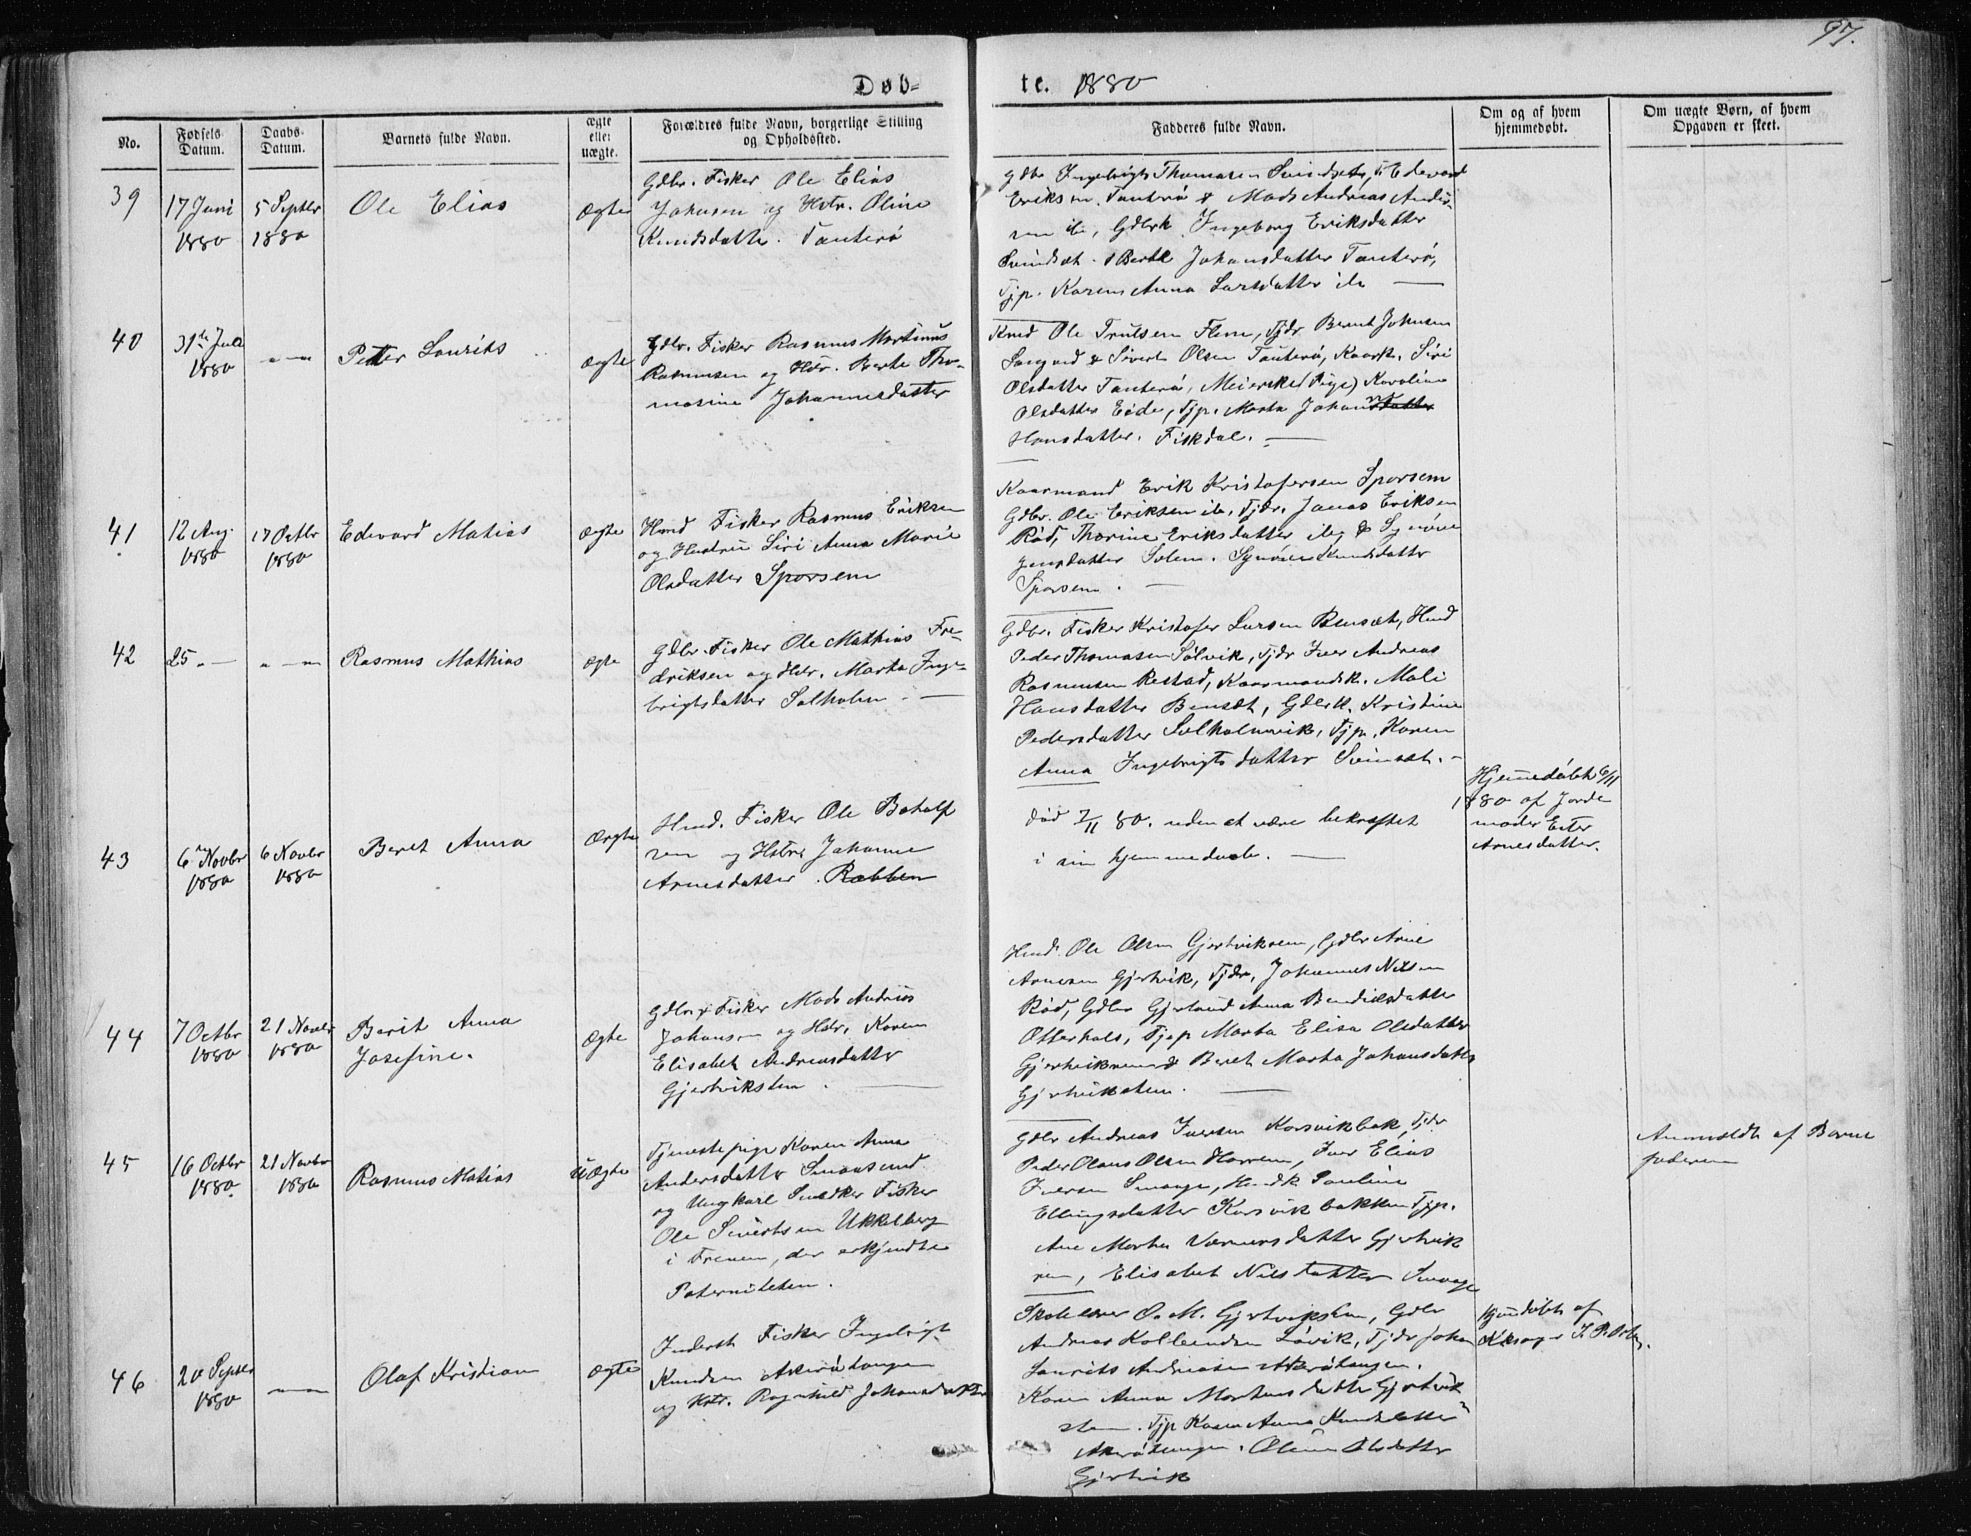 97.
Døb-
te. 1880
No.
Fødsels-
Datum.
Daabs-
Datum.
Barnets fulde Navn.
ægte
eller
uægte.
Forældres fulde Navn, borgerlige Stilling
og Opholdssted.
Faddernes fulde Navn.
Om og af hvem
hjemmedøbt.
Om uægte Børn, af hvem
Opgaven er skeet.
39
17 Juni
1880
5 Septbr
1880
Ole Elias
Ægte
Gdbr. Fisker Ole Elias
Johnsen og Hstr. Oline
Knudsdatter. Tanterø
Gdbr Ingebrigt Thomasen Svindset, Edevard
Eriksen Tanterø & Mads Andreas
Gdbrk Ingeborg Eriksdatter
Svindset. Johansdatter Tanterø,
Tjp. Karen Anna Larsdatter ib
40
31te Juli
1880
Petter Laurits
Ægte
Gdbr. Fisker Rasmus Martinus
Rasmussen og Hstr. Berte Tho-
masine Johannesdatter
Ole Trulsen Flem, Tjdr Bernt Johnsen
& Sivert Olsen Tanterø, Kaark. Siri
Olsdatter Tanterø, (Pige) Karoline
Olsdatter Eide, Tjp. Marta Johansdatter
Hansdatter. Fiskdal.
41
12 Aug
1880
17 Octbr
1880
Edevard Matias
Ægte
Hmd Fisker Rasmus Eriksen
og Hustru Siri Anna Marie
Olsdatter Sporsem
Kaarmand Erik Kristofersen Sporsem
Gdbr. Ole Eriksen ib, Tjdr. Jonas Eriksen
Rød, Thorine Eriksdatter ib, & Synøve
Jensdatter Solem. Synøve Knudsdatter
Sporsem.
42
25
Rasmus Mathias
Ægte
Gdbr. Fisker Ole Mathias Fre-
driksen og Hstr. Marta Inge-
brigtsdatter Solholm.
Gdbr. Fisker Kristofer Larsen Bensæt, Hmd
Peder Thomasen Sølvik, Tjdr Iver Andreas
Rasmussen Restad, Kaarmandsk. Mali
Hansdatter Bensæt, Gdbrk. Kristine
Pedersdatter Solholmvik, Tjp. Karen
Anna Ingebrigtsdatter Svinsæt.
43
6 Novbr
1880
6 Novbr
1880
Beret Anna
Ægte
Hmd. Fisker Ole Botolf
sen og Hstr Johanne
Arnesdatter. Røbben
død 7/11 80. uden at være bekræftet
i sin hjemmedaab.
Hjemmedøbt 6/11
1880 af Jorde
moder Ester
Arnesdatter.
44
7 Octbr
1880
21 Novbr
1880
Berit Anna
Josefine.
Ægte
Gdbr & Fisker Mads Andreas
Johansen og Hstr. Karen
Elisabet Andreasdatter
Gjertvikstem.
Hmd. Ole Olsen Gjertvikrem, Gdbr Arne
Arnesen Gjertvik, Tjdr. Johannes Nilsen
Rød, Gdbr Gjerlaud Anna Bendiksdatter
Otterhals, Tjp Marta Elisa Olsdatter
Gjertvikrem & Beret Marta Johansdatter
Gjertvikstem.
45
16 Octbr
1880.
21 Novbr
1880
Rasmus Matias
Uægte
Tjenestepige Karen Anna
Andersdatter Smaasund
og Ungkarl Snedker Fisker
Ole Sivertsen Ukkelberg
i Frenen, der erkjendte
Paterniteten.
Gdbr Andreas Iversen Korsvikbak, Tjdr
Peder Olaus Olsen Harrem, Iver Elias
Iversen Smaage, Hmdk Pauline
Ellingsdatter Korsvikbakken Tjp.
Ane Marta Varnersdatter Gjertvik
rem, Elisabet Nilsdatter Smaage
Anmeldt af Barne
faderen
46
20 Septbr
1880
Olaf Kristian
Ægte
Inderst Fisker Ingebrigt
Knudsen Akerøtangen
og Hstr. Ragnhild Johansdatter
Skolelærer O. M. Gjertvikstem, Gdbr
Andreas Kolbeinsen Løvik, Tjdr Johan
Laurits Andreasen Akerøtangen.
Karen Anna Mortensdatter Gjertvik
stem. Tjp Karen Anna Knudsdatter
Akerøtangen. Olsdatter
Gjertvik
Hjemdøbt af